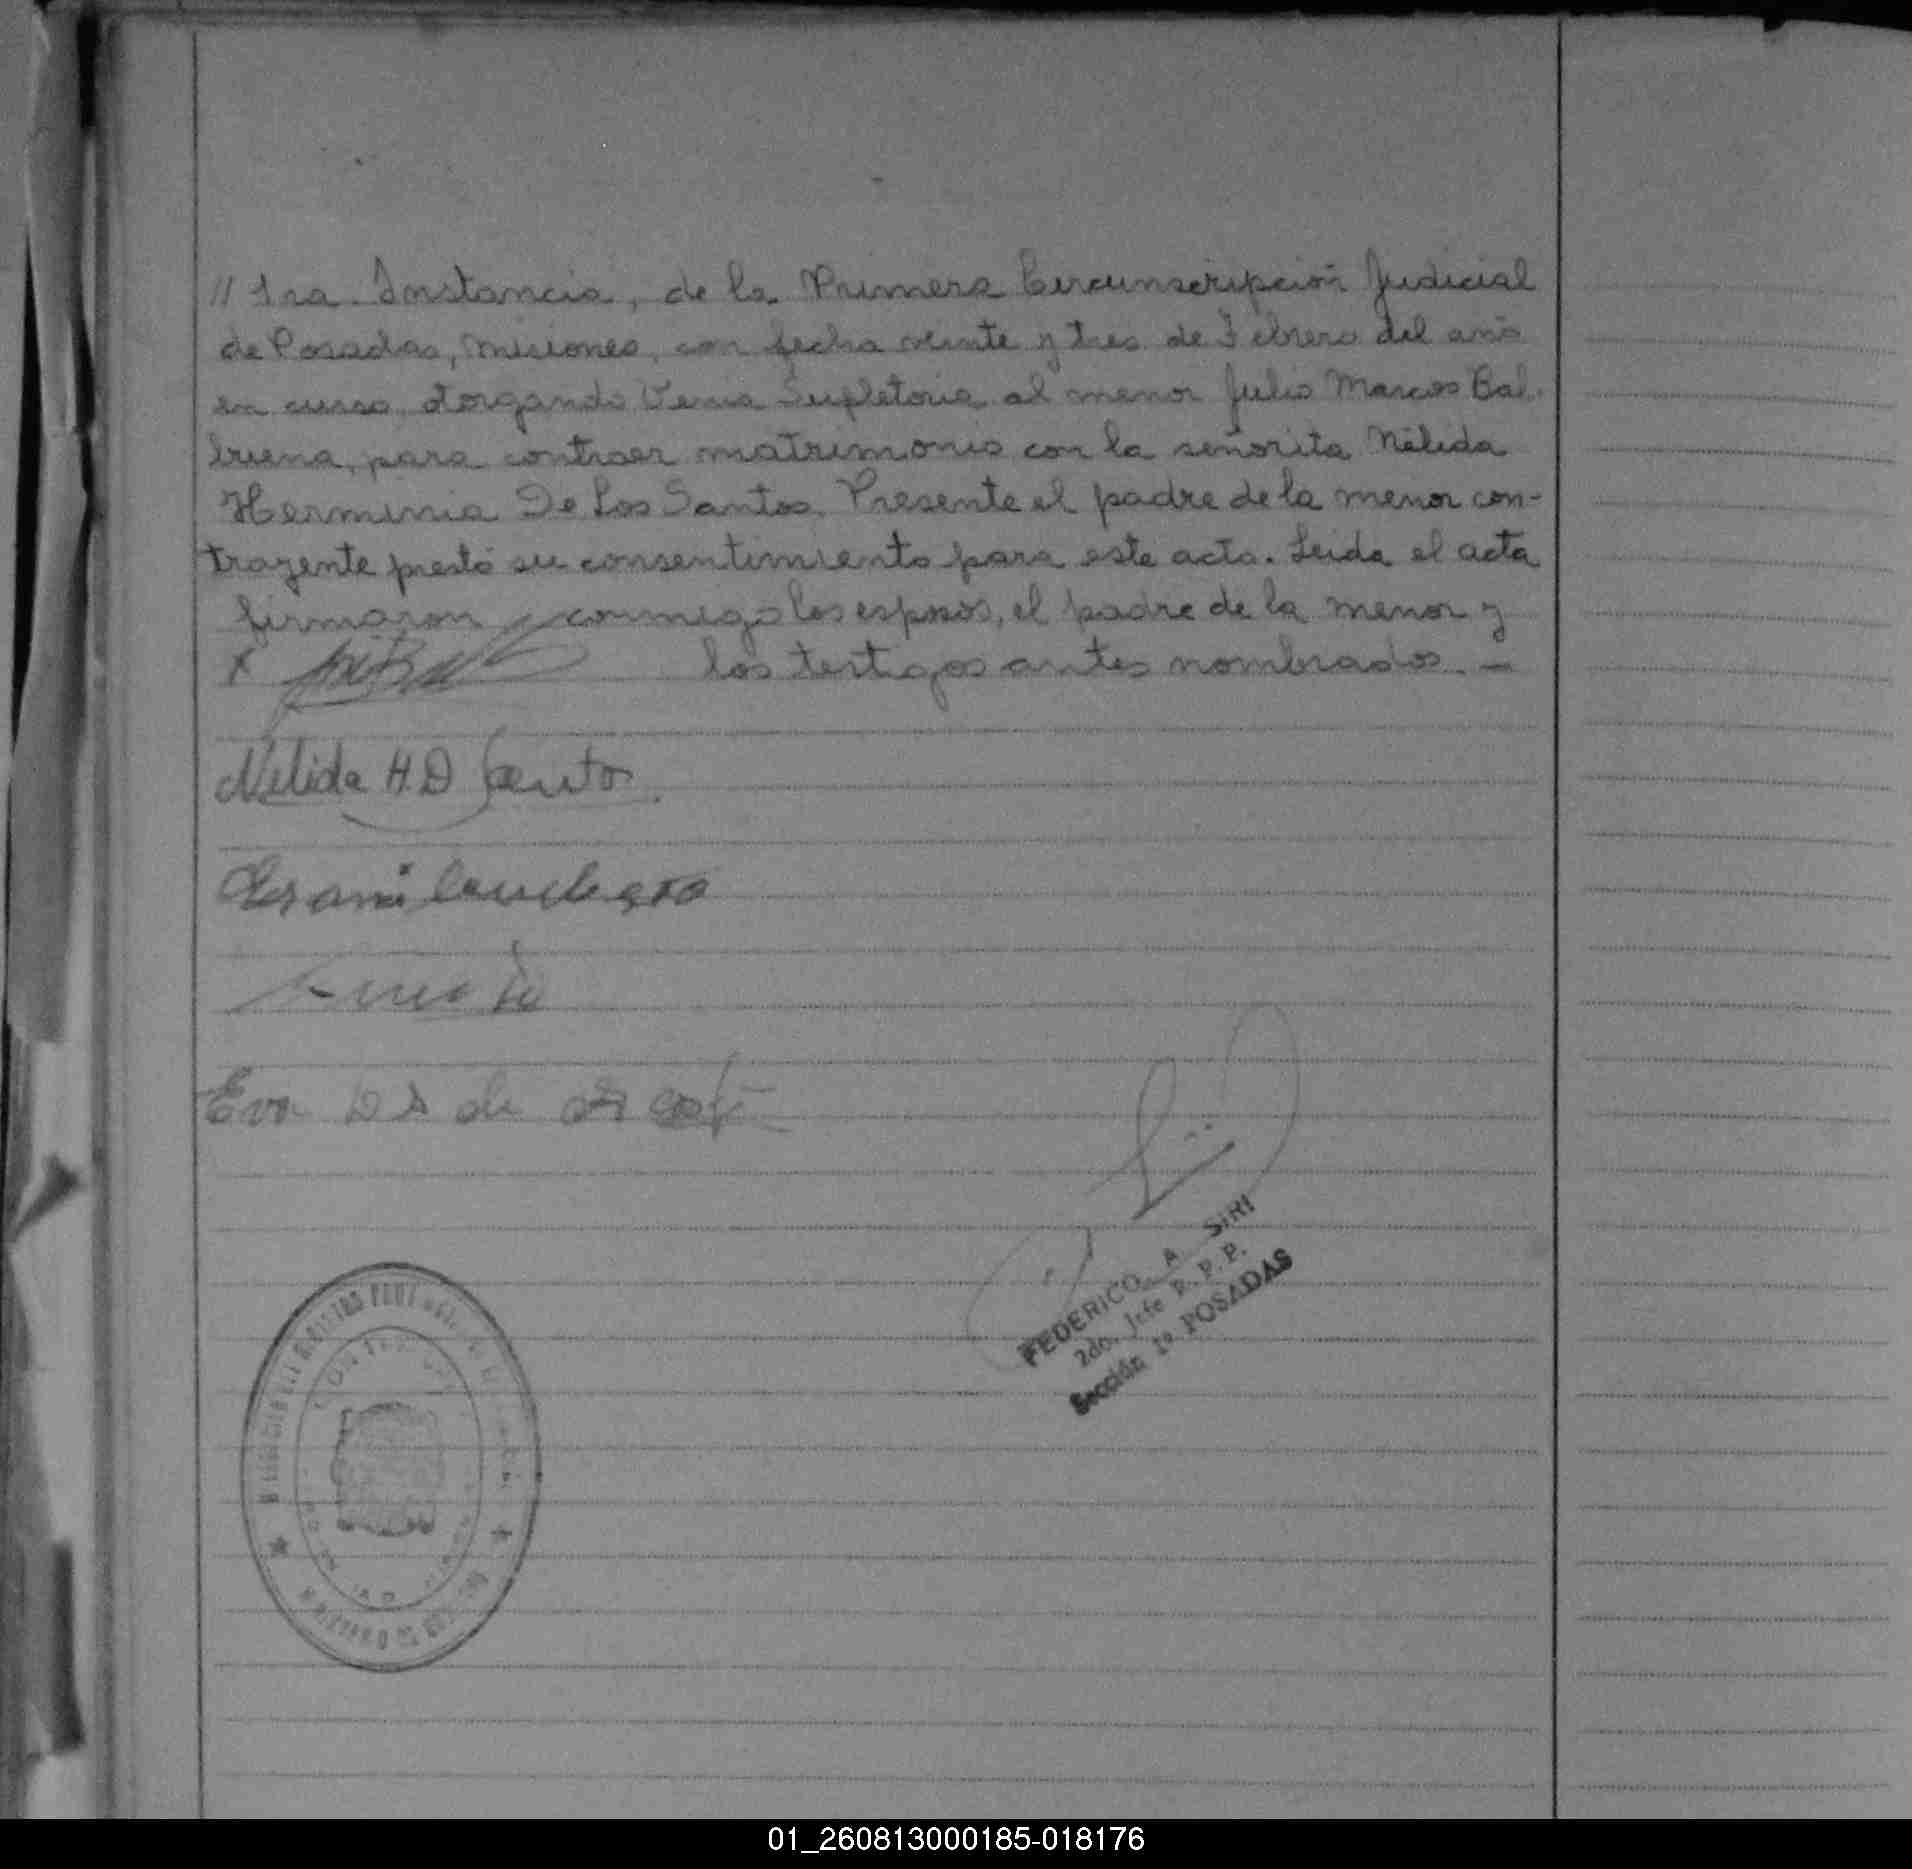 // 1ra. Instancia, de la Primera Circunscripción Judicial
de Posadas, Misiones, con fecha veinte y tres de Febrero del año
en curso otorgando Venia Supletoria al menor Julio Marcos Bal-
buena, para contraer matrimonio con la señorita Nélida
Herminia De Los Santos. Presente el padre de la menor con-
trayente prestó su consentimiento para este acto. Leida el acta
firmaron conmigo los esposos, el padre de la menor y
x
los testigos antes nombrados. -
Nélida H. D Santos
Eva D S de
FEDERICO A. SIRI
2do. Jefe R. P. P.
Sección 1ª POSADAS
01_260813000185-018176